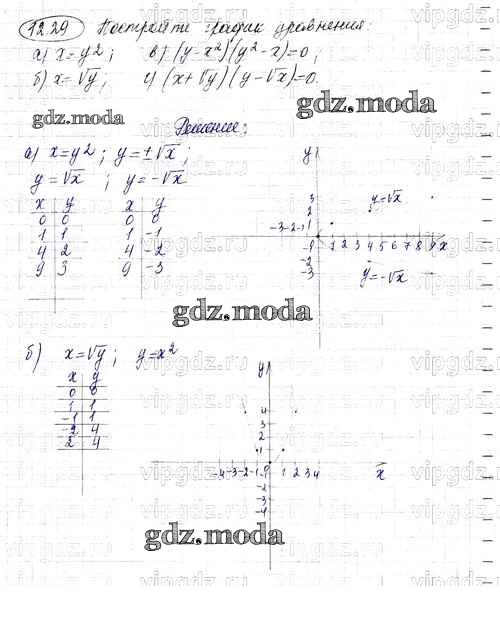 12.29 Построить график уравнения:
а) x=y²; в) (y-x²)(y²-x)=0;
б) x=√y; г) (x+√y)(y-√x)=0.
gdz.moda
Решение:
а) x=y²; y=±√x;
y=√x; y=-√x
x y x y
0 0 0 0
1 1 1 -1
4 2 4 -2
9 3 9 -3
y
3
2
1
-3 -2 -1 0 1 2 3 4 5 6 7 8 9 x
-2
-3
y=√x
y=-√x
gdz.moda
б) x=√y; y=x²
x y
0 0
1 1
-1 1
-2 4
2 4
y
4
3
2
1
-4 -3 -2 -1 0 1 2 3 4 x
-2
-3
-4
gdz.moda
vipgdz.ru